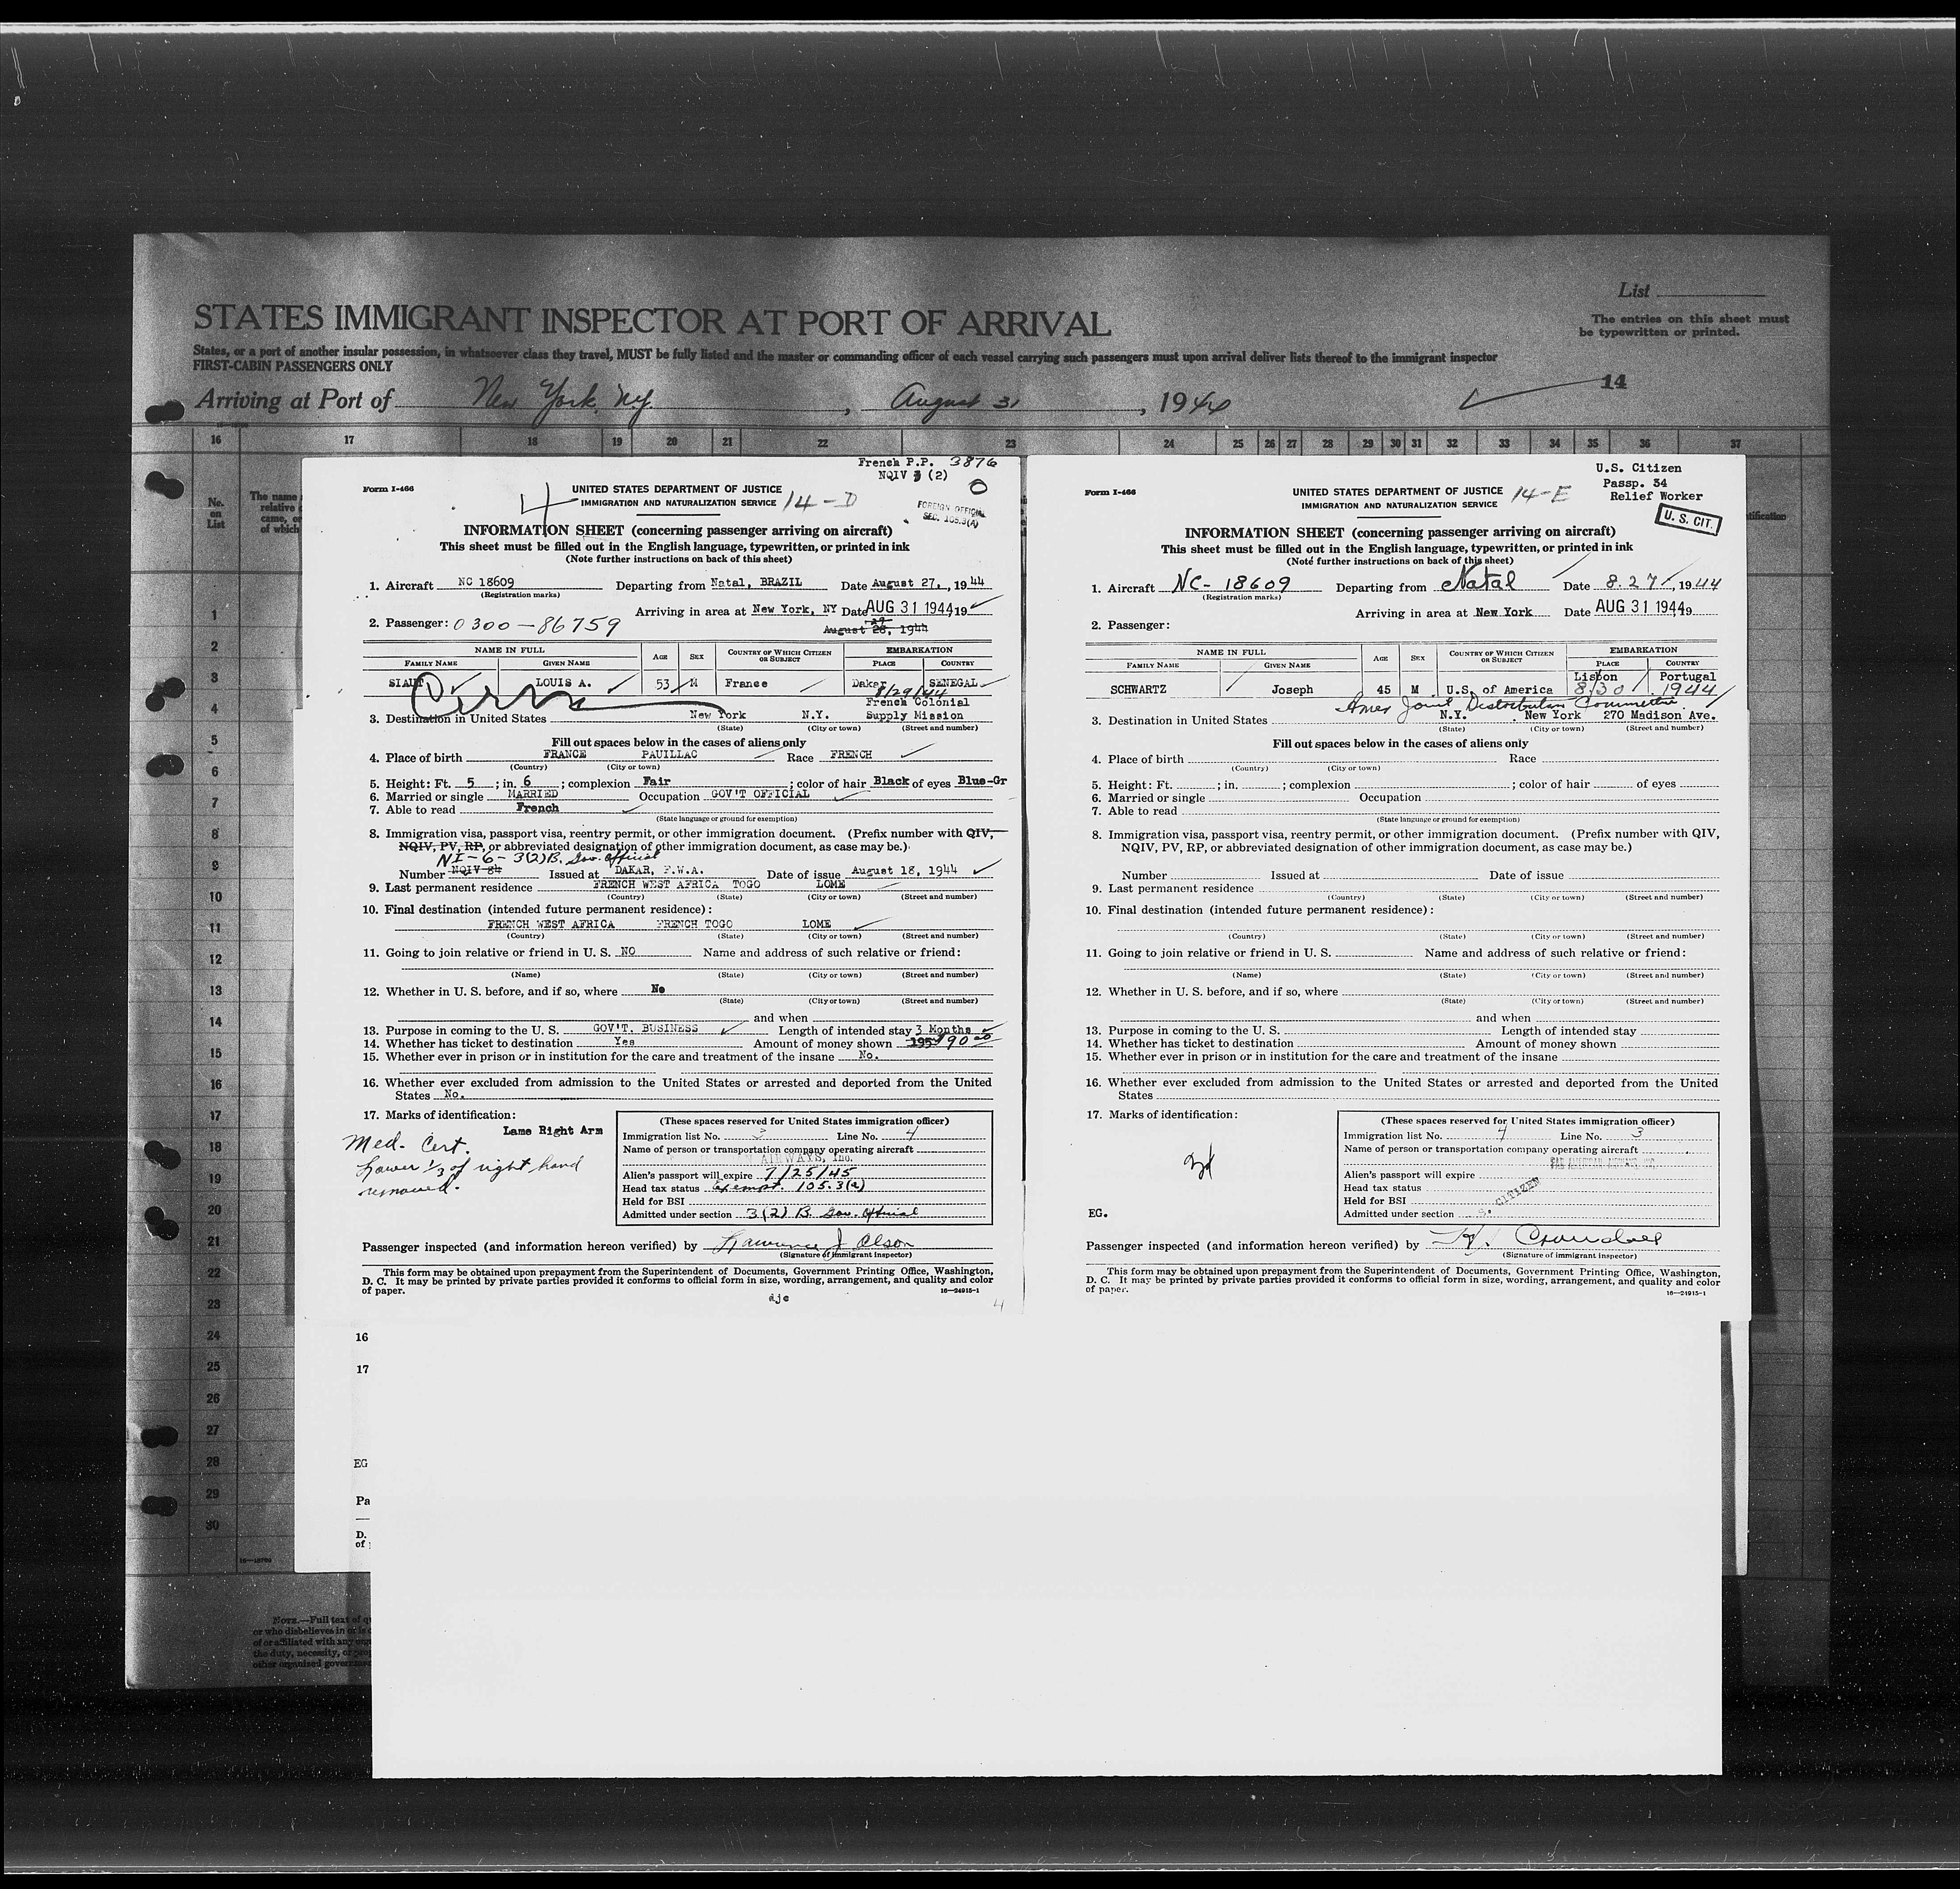 List
STATES IMMIGRANT INSPECTOR AT PORT OF ARRIVAL
The entries on this sheet must
be typewritten or printed.
States, or a port of another insular possession, in whatsoever class they travel, MUST be fully listed and the master or commanding officer of each vessel carrying such passengers must upon arrival deliver lists thereof to the immigrant inspector
FIRST-CABIN PASSENGERS ONLY
14
Arriving at Port of New York, N.Y. , August 31 , 1944
16 17 18 19 20 21 22 23 24 25 26 27 28 29 30 31 32 33 34 35 36 37
No.
on
List
The name
relative
came, or
of which
1
2
3
4
5
6
7
8
9
10
11
12
13
14
15
16
17
18
19
20
21
22
23
24
25
26
27
28
29
30
French P.P. 3876
NQIV 3 (2)
Form I-466
4
UNITED STATES DEPARTMENT OF JUSTICE
IMMIGRATION AND NATURALIZATION SERVICE
14-D
O
FOREIGN OFFICIAL
SEC. 105.3(A)
INFORMATION SHEET (concerning passenger arriving on aircraft)
This sheet must be filled out in the English language, typewritten, or printed in ink
(Note further instructions on back of this sheet)
1. Aircraft NC 18609 Departing from Natal, BRAZIL Date August 27, , 1944
(Registration marks)
Arriving in area at New York, NY Date AUG 31 1944 19
2. Passenger: 0300-86759
29
August 28, 1944
NAME IN FULL AGE SEX COUNTRY OF WHICH CITIZEN OR SUBJECT EMBARKATION
FAMILY NAME GIVEN NAME PLACE COUNTRY
SIAUT LOUIS A. 53 M France Dakar SENEGAL
8/29/44
French Colonial
3. Destination in United States New York N.Y. Supply Mission
(State) (City or town) (Street and number)
Fill out spaces below in the cases of aliens only
4. Place of birth FRANCE PAUILLAC Race FRENCH
(Country) (City or town)
5. Height: Ft. 5 ; in. 6 ; complexion Fair ; color of hair Black of eyes Blue-Gr
6. Married or single MARRIED Occupation GOV'T OFFICIAL
7. Able to read French
(State language or ground for exemption)
8. Immigration visa, passport visa, reentry permit, or other immigration document. (Prefix number with QIV,
NQIV, PV, RP, or abbreviated designation of other immigration document, as case may be.)
NI-6-3(2)B. Gov. Official
Number NQIV 84 Issued at DAKAR, F.W.A. Date of issue August 18, 1944
9. Last permanent residence FRENCH WEST AFRICA TOGO LOME
(Country) (State) (City or town) (Street and number)
10. Final destination (intended future permanent residence):
FRENCH WEST AFRICA FRENCH TOGO LOME
(Country) (State) (City or town) (Street and number)
11. Going to join relative or friend in U. S. NO Name and address of such relative or friend:
(Name) (State) (City or town) (Street and number)
12. Whether in U. S. before, and if so, where No
(State) (City or town) (Street and number)
and when
13. Purpose in coming to the U. S. GOV'T. BUSINESS Length of intended stay 3 Months
14. Whether has ticket to destination Yes Amount of money shown 195 190 00
15. Whether ever in prison or in institution for the care and treatment of the insane No.
16. Whether ever excluded from admission to the United States or arrested and deported from the United
States No.
17. Marks of identification:
Lame Right Arm
Med. Cert.
Lower 1/3 of right hand
removed.
(These spaces reserved for United States immigration officer)
Immigration list No. 3 Line No. 4
Name of person or transportation company operating aircraft
AIRWAYS, Inc.
Alien's passport will expire 7/25/45
Head tax status exempt. 105.3(a)
Held for BSI
Admitted under section 3(2) B. Gov. Official
Passenger inspected (and information hereon verified) by Lawrence J Olson
(Signature of immigrant inspector)
This form may be obtained upon prepayment from the Superintendent of Documents, Government Printing Office, Washington,
D. C. It may be printed by private parties provided it conforms to official form in size, wording, arrangement, and quality and color
of paper.
16—24915-1
ajc
4
U.S. Citizen
Passp. 34
Relief Worker
U. S. CIT.
Form I-466
UNITED STATES DEPARTMENT OF JUSTICE
IMMIGRATION AND NATURALIZATION SERVICE
14-E
INFORMATION SHEET (concerning passenger arriving on aircraft)
This sheet must be filled out in the English language, typewritten, or printed in ink
(Note further instructions on back of this sheet)
1. Aircraft NC-18609 Departing from Natal Date 8.27 , 1944
(Registration marks)
Arriving in area at New York Date AUG 31 1944 19
2. Passenger:
NAME IN FULL AGE SEX COUNTRY OF WHICH CITIZEN OR SUBJECT EMBARKATION
FAMILY NAME GIVEN NAME PLACE COUNTRY
Lisbon Portugal
SCHWARTZ Joseph 45 M U.S. of America 8/30 1944
Amer Joint Distribution Committee
3. Destination in United States N.Y. New York 270 Madison Ave.
(State) (City or town) (Street and number)
Fill out spaces below in the cases of aliens only
4. Place of birth Race
(Country) (City or town)
5. Height: Ft. ; in. ; complexion ; color of hair of eyes
6. Married or single Occupation
7. Able to read
(State language or ground for exemption)
8. Immigration visa, passport visa, reentry permit, or other immigration document. (Prefix number with QIV,
NQIV, PV, RP, or abbreviated designation of other immigration document, as case may be.)
Number Issued at Date of issue
9. Last permanent residence
(Country) (State) (City or town) (Street and number)
10. Final destination (intended future permanent residence):
(Country) (State) (City or town) (Street and number)
11. Going to join relative or friend in U. S. Name and address of such relative or friend:
(Name) (State) (City or town) (Street and number)
12. Whether in U. S. before, and if so, where
(State) (City or town) (Street and number)
and when
13. Purpose in coming to the U. S. Length of intended stay
14. Whether has ticket to destination Amount of money shown
15. Whether ever in prison or in institution for the care and treatment of the insane
16. Whether ever excluded from admission to the United States or arrested and deported from the United
States
17. Marks of identification:
EG.
(These spaces reserved for United States immigration officer)
Immigration list No. 4 Line No. 3
Name of person or transportation company operating aircraft
PAN AMERICAN AIRWAYS, INC.
Alien's passport will expire
Head tax status
Held for BSI
Admitted under section S. CITIZEN
Passenger inspected (and information hereon verified) by
(Signature of immigrant inspector)
This form may be obtained upon prepayment from the Superintendent of Documents, Government Printing Office, Washington,
D. C. It may be printed by private parties provided it conforms to official form in size, wording, arrangement, and quality and color
of paper.
16—24915-1
16
17
EG
Pa
D.
of
NOTE.—Full text of
or who disbelieves in or is
of or affiliated with any
the duty, necessity, or
other organized